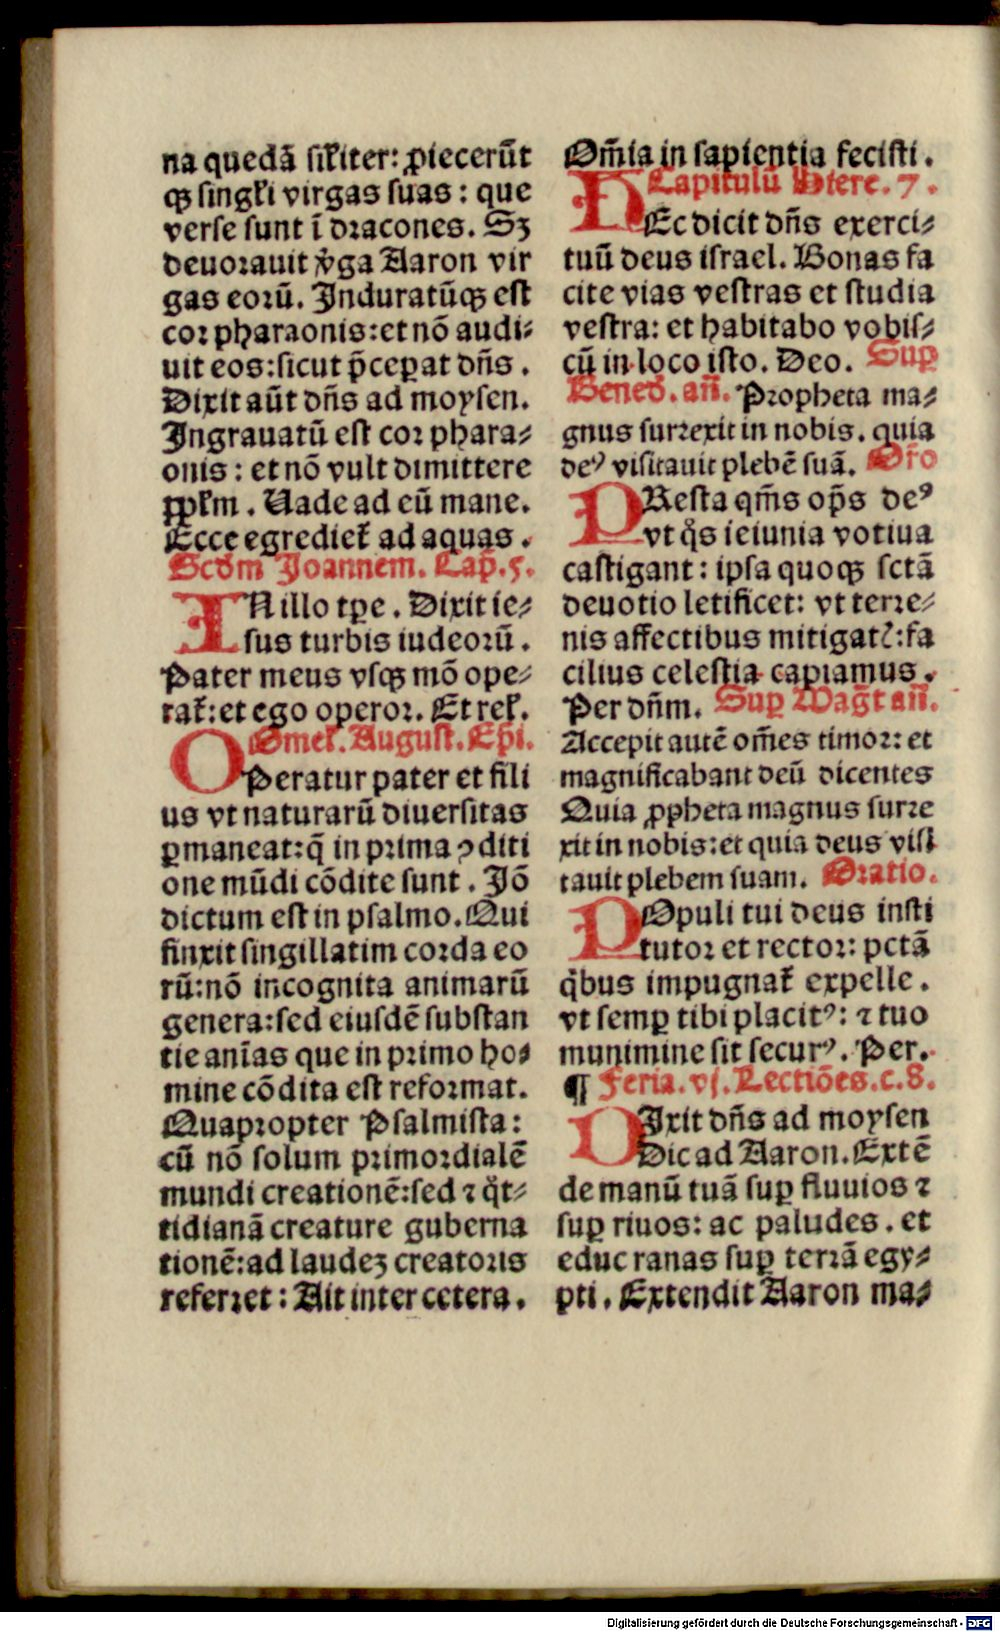 na quedã sikiter: ꝓiecerũt
qꝫ singƚi virgas suas: que
verse sunt ĩ dracones. Sꝫ
deuorauit v̾ga Aaron vir
gas eorũ. Induratũqꝫ est
cor pharaonis: et nõ audi⸗
uit eos: sicut p̃ceꝑat dñs.
Dixit aũt dñs ad moysen.
Ingrauatũ est cor phara⸗
onis: et nõ vult dimittere
ppƚm. Uade ad eũ mane.
Ecce egrediet᷑ ad aquas.
Scd̃m Joannem. Cap̃. 5.
IN illo tꝑe. Dixit ie⸗
sus turbis iudeorũ.
Pater meus vsqꝫ mõ ope⸗
rat᷑: et ego operor. Et reƚ.
Omeƚ. August. Ep̃i.
OPeratur pater et fili
us vt naturarũ diuersitas
ꝑmaneat: q̃ in prima ↄditi
one mũdi cõdite sunt. Iõ
dictum est in psalmo. Qui
finxit singillatim corda eo
rũ: nõ incognita animarũ
genera: sed eiusdẽ substan
tie anĩas que in primo ho⸗
mine cõdita est reformat.
Quapropter Psalmista:
cũ nõ solum primordialẽ
mundi creationẽ: sed ⁊ q̊t⸗
tidianã creature guberna
tionẽ: ad laudeꝫ creatoris
referret: Ait inter cetera.
Om̃ia in sapientia fecisti.
Capitulũ Hiere. 7.
HEc dicit dñs exerci⸗
tuũ deus israel. Bonas fa
cite vias vestras et studia
vestra: et habitabo vobis⸗
cũ in loco isto. Deo. Suꝑ
Bened. añ. Propheta ma⸗
gnus surrexit in nobis. quia
deꝰ visitauit plebẽ suã. Or̃o
PResta qm̃s op̃s deꝰ
vt q̊s ieiunia votiua
castigant: ipsa quoqꝫ sctã
deuotio letificet: vt terre⸗
nis affectibus mitigat᷑: fa
cilius celestia capiamus.
Per dñm. Suꝑ Mag̃t añ.
Accepit autẽ om̃es timor: et
magnificabant deũ dicentes
Quia ꝓpheta magnus surre
xit in nobis: et quia deus visi
tauit plebem suam. Oratio.
POpuli tui deus insti
tutor et rector: pctã
q̊bus impugnat᷑ expelle.
vt semꝑ tibi placitꝰ: ⁊ tuo
munimine sit securꝰ. Per.
¶ Feria. vj. Lectiões. c. 8.
DIxit dñs ad moysen
Dic ad Aaron. Extẽ
de manũ tuã suꝑ fluuios ⁊
suꝑ riuos: ac paludes. et
educ ranas suꝑ terrã egy⸗
pti. Extendit Aaron ma⸗
Digitalisierung gefördert durch die Deutsche Forschungsgemeinschaft - DFG